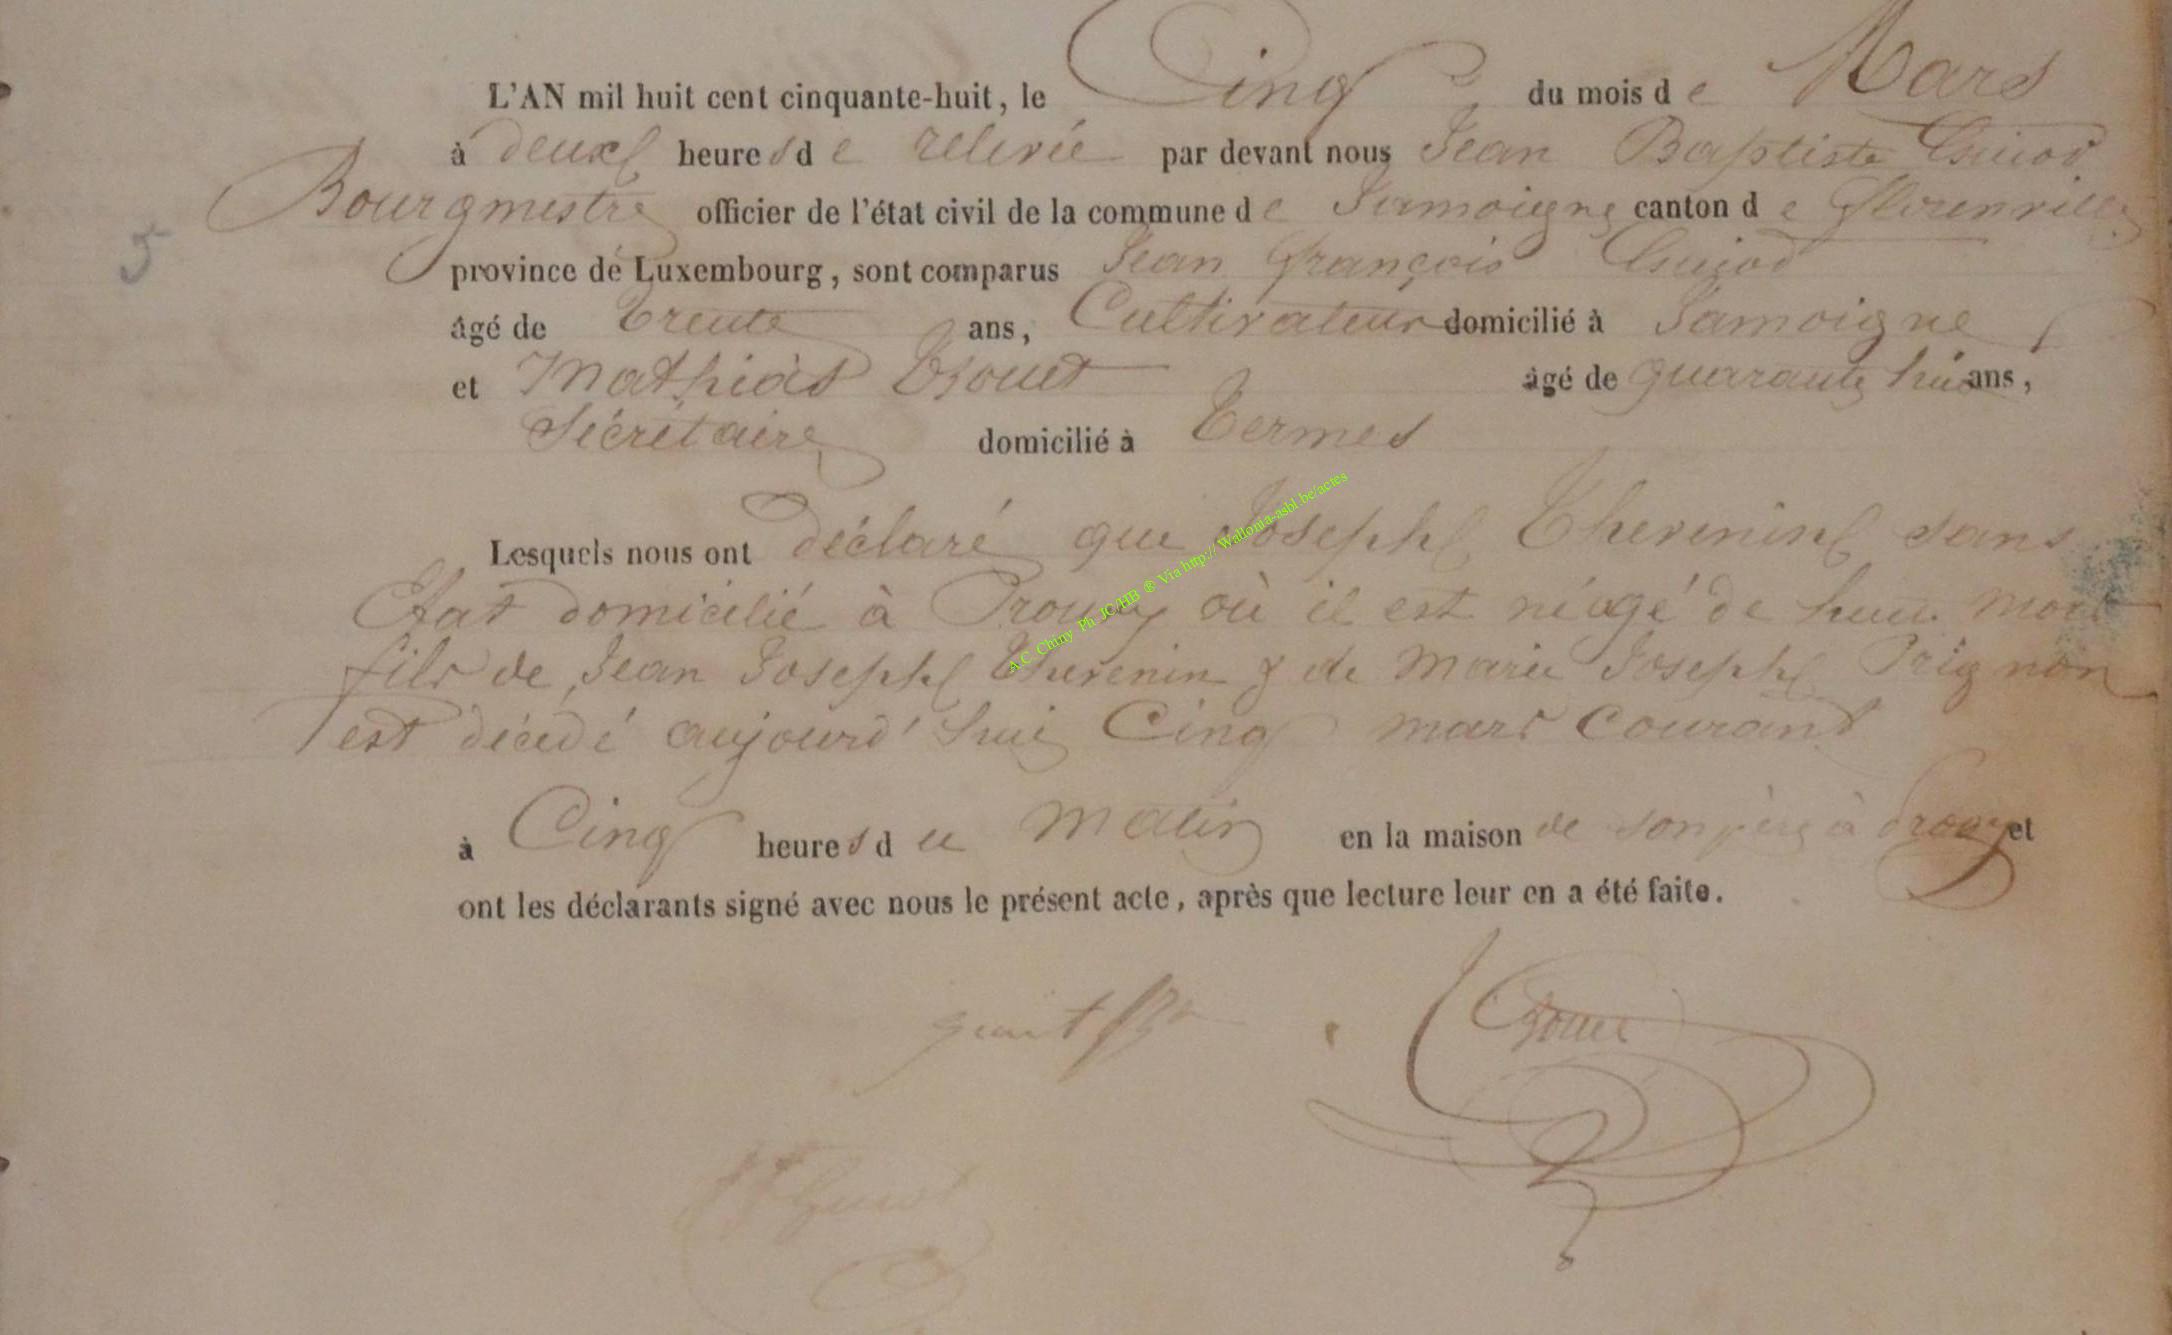 L'AN mil huit cent cinquante-huit, le Cinq du mois de Mars
à deux heures de relevée par devant nous Jean Baptiste Guiot
Bourgmestre officier de l'état civil de la commune de Jamoigne canton de Florenville
5
province de Luxembourg, sont comparus Jean François Guiot
âgé de trente ans, Cultivateur domicilié à Jamoigne
et Mathias âgé de quarante huit ans,
Sécrétaire domicilié à Termes
Lesquels nous ont déclaré que Joseph Thevenin sans
Etat domicilié à Prouvy où il est né âgé de huit mois
fils de Jean Joseph Thevenin & de Marie Joseph Prignon
est décédé aujourd'hui Cinq mars Courant
à Cinq heures du Matin en la maison de son père à Prouvy et
ont les déclarants signé avec nous le présent acte, après que lecture leur en a été faite.
A.C. Chiny Ph JC/HB ® Via http://Wallonia-asbl.be/actes